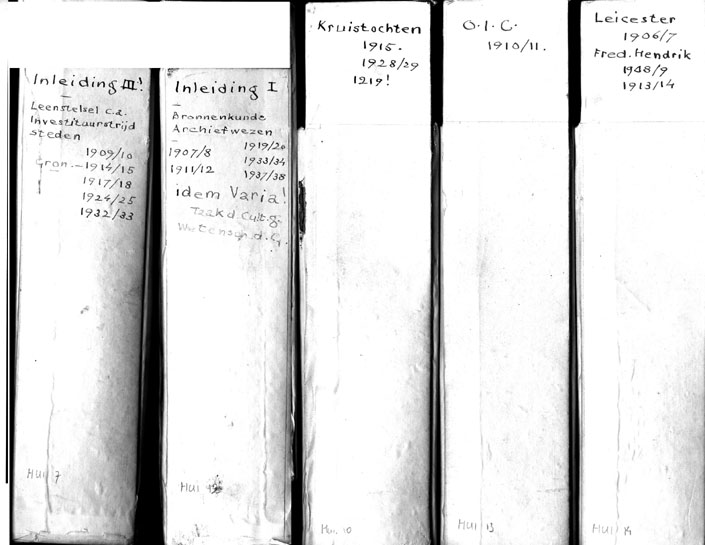 Inleiding III!
Leenstelsel c.a.
Investituurstrijd
steden
1909/10
Gron. - 1914/15
1917/18
1924/25
1932/33
HUI 7
Inleiding I
Bronnenkunde
Archiefwezen
1919/20
1907/8 1933/34
1911/12 1937/38
idem Varia!
Taak d Cult.g.
Wetensch. d. G.
HUI
Kruistochten
1915.
1928/29
1219!
Hui. 10
O.I.C.
1910/11.
HUI 13
Leicester
1906/7
Fred. Hendrik
1908/9
1913/14
HUI 14